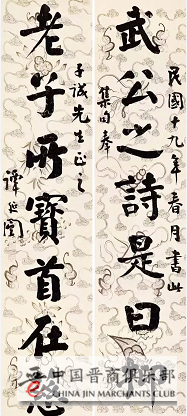 民國十九年春月書此
集句奉
武公之詩是曰
子誠先生正之
老子所寶首在慈
譚延闓
中国晋商俱乐部
CHINA JIN MARCHANTS CLUB